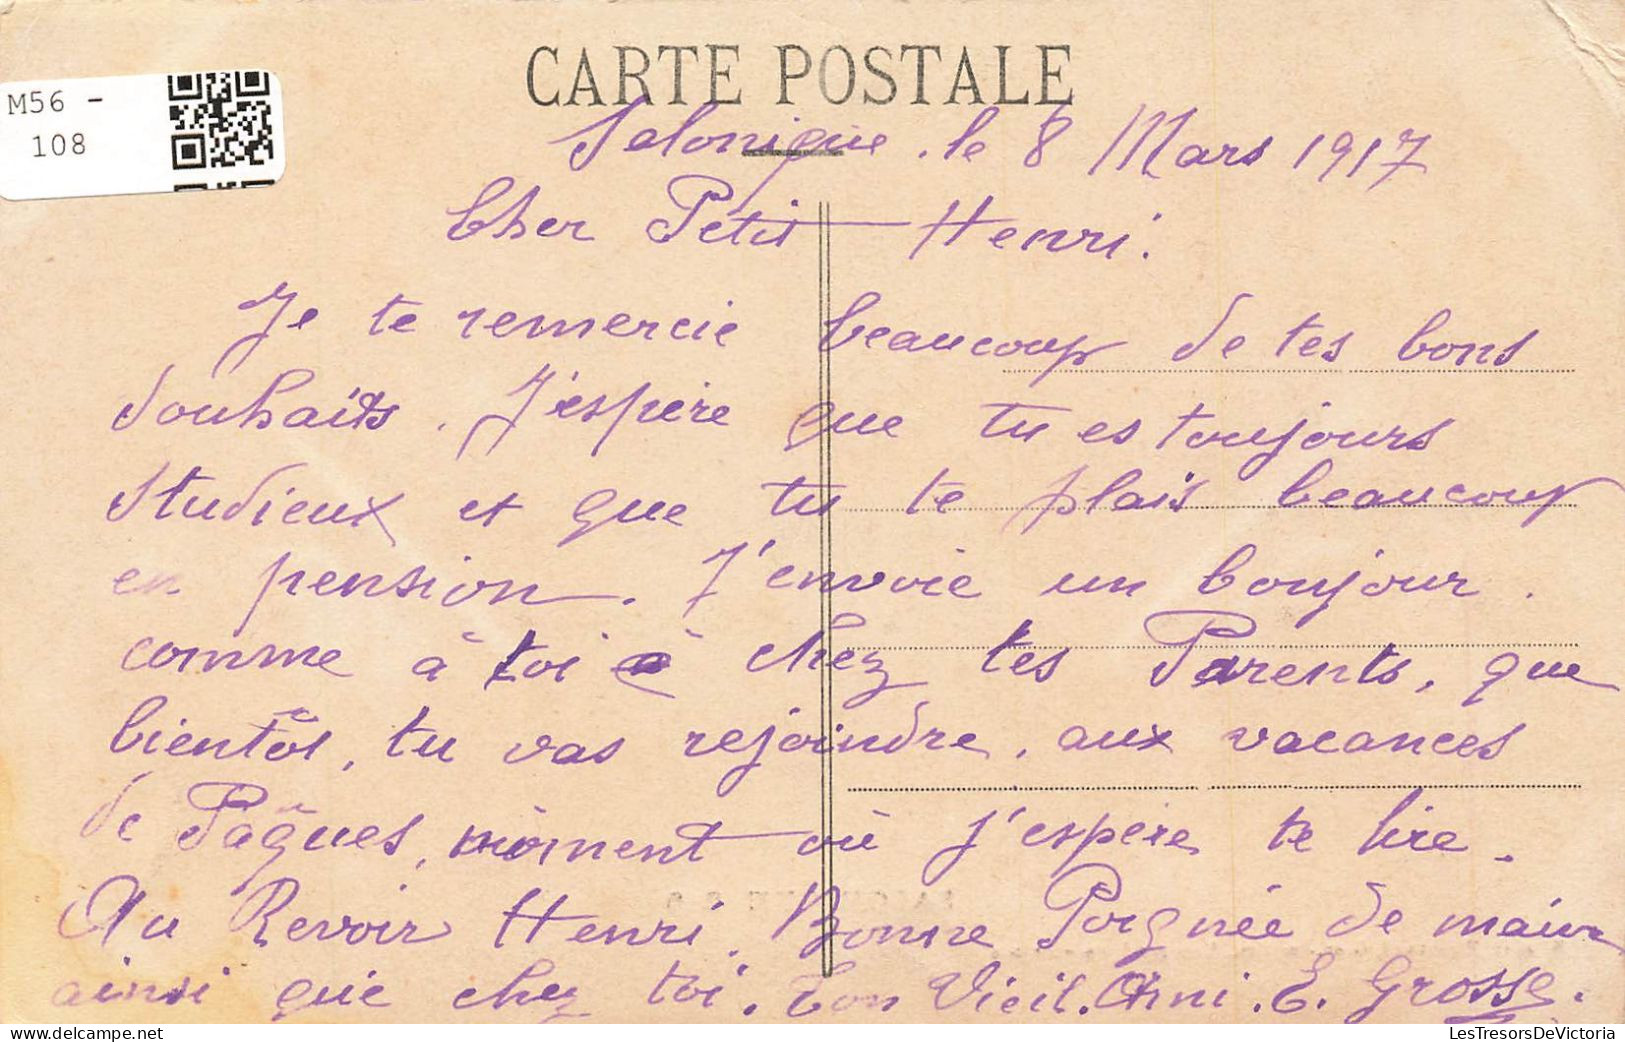 M56 -
108
CARTE POSTALE
Salonique, le 8 Mars 1917
Cher Petit Henri.
Je te remercie beaucoup de tes bons
souhaits. J'espère que tu es toujours
studieux et que tu te plais beaucoup
en pension. J'envoie un bonjour.
comme à toi à chez tes Parents, que
bientôt, tu vas rejoindre, aux vacances
de Pâques, moment où j'espère te lire.
Au Revoir Henri. Bonne Poignée de main
ainsi que chez toi. Ton Vieil Ami. E. Grosse.
LesTresorsDeVictoria